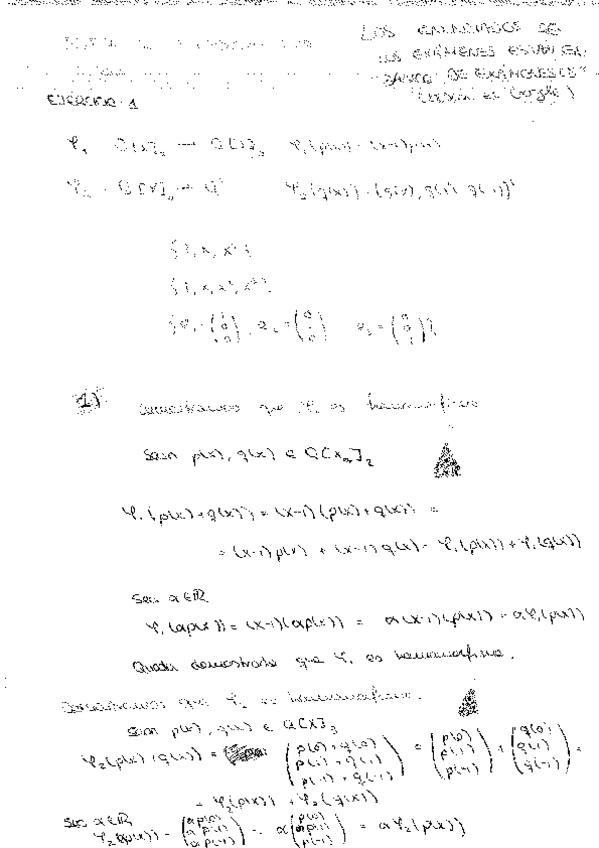 LOS ENUNCIADOS DE
LOS EXÁMENES ESTÁN EN
"BANCO DE EXÁMENES"
Google)
EJERCICIO 1
φ₁ Q[x]₂ → Q[x]₃ φ₁(p(x)) = (x-1)p(x)
φ₂ : Q[x]₃ → Q³ φ₂(q(x)) = (q(0), q(1), q(-1))ᵗ
{1, x, x²}
{1, x, x², x³}
1)
Demostramos que φ₁ es homomorfismo
Sean p(x), q(x) ∈ Q[x]₂
φ₁(p(x)+q(x)) = (x-1)(p(x)+q(x)) =
= (x-1)p(x) + (x-1)q(x) = φ₁(p(x)) + φ₁(q(x))
Sea α∈ℝ
φ₁(αp(x)) = (x-1)(αp(x)) = α(x-1)(p(x)) = αφ₁(p(x))
Queda demostrado que φ₁ es homomorfismo.
Demostramos que φ₂ es homomorfismo.
Sean p(x), q(x) ∈ Q[x]₃
φ₂(p(x)+q(x)) = (p(0)+q(0) p(1)+q(1) p(-1)+q(-1)) = (p(0) p(1) p(-1)) + (q(0) q(1) q(-1)) =
= φ₂(p(x)) + φ₂(q(x))
Sea α∈ℝ
φ₂(αp(x)) = (αp(0) αp(1) αp(-1)) = α(p(0) p(1) p(-1)) = αφ₂(p(x))